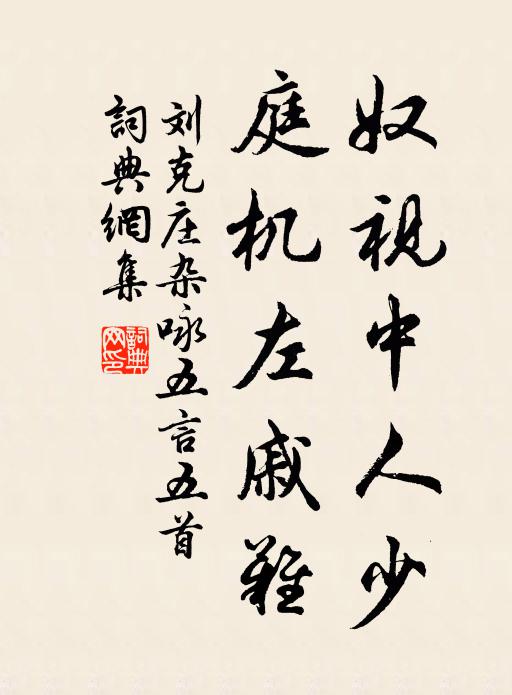 奴视中人少
庭机左戚难
刘克庄杂咏五言五首
詞典網集
詞典网印